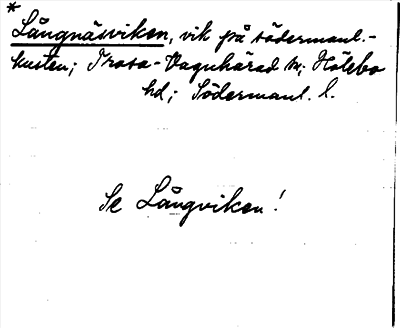 *
Långnäsviken, vik på södermanl.-
kusten; Trosa-Vagnhärad sn; Hölebo
hd; Södermanl. l.
Se Långviken!